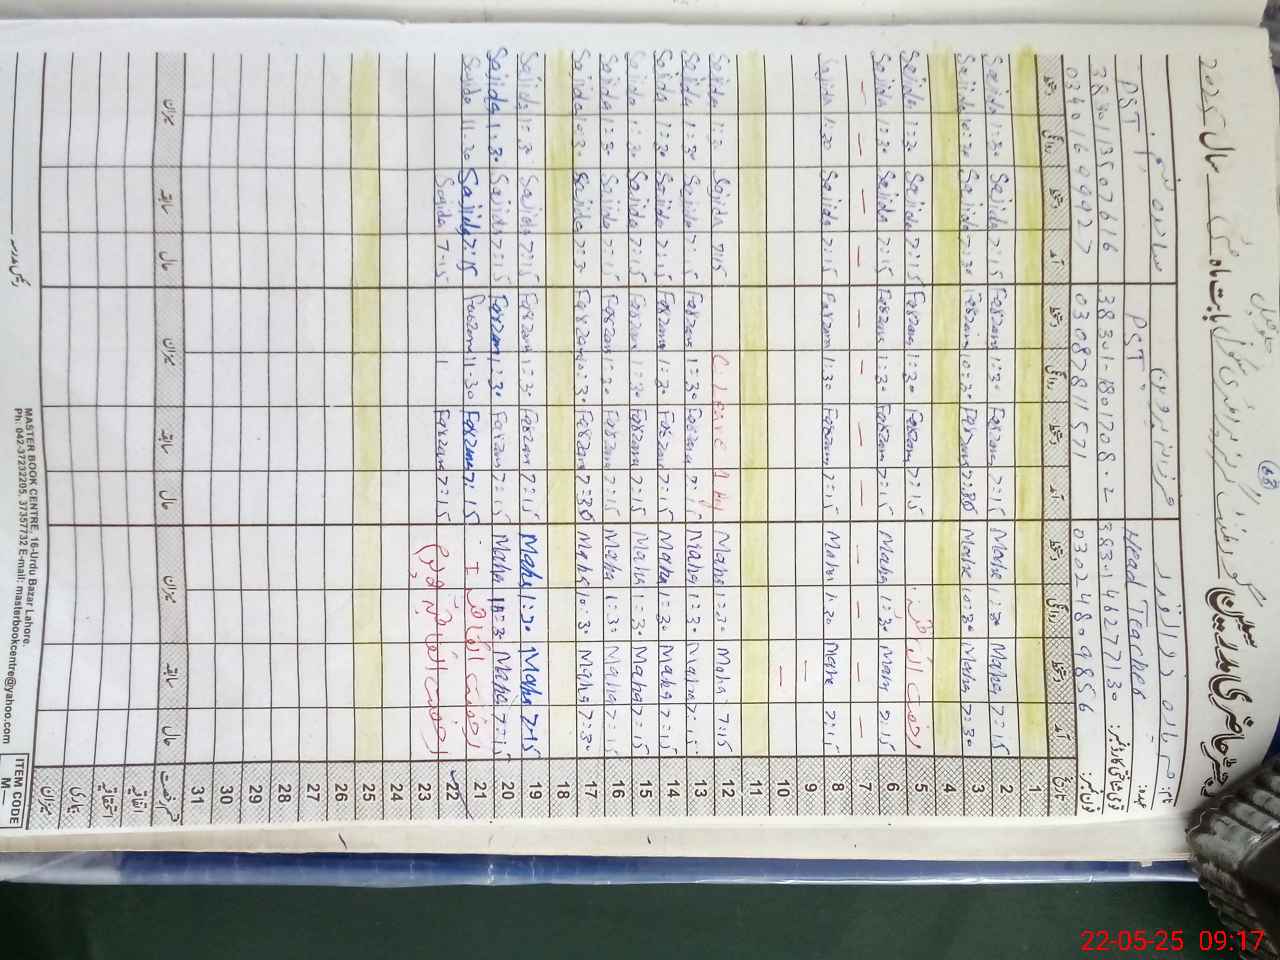 (68)
سال 2025
نام:
عہدہ: Head Teacher PST PST
قومی شناختی کارڈ نمبر: 38301-13507616
فون نمبر: 03024809856 03087811571 03401699927
تاریخ آمد دستخط روانگی دستخط آمد دستخط روانگی دستخط آمد دستخط روانگی دستخط
1
2 Maha 7=15 Maha 1=30 Farzana 7=15 Farzana 1=30 Sajida 7=15 Sajida 1=30
3 Maha 7=30 Maha 10=30 Farzana 7=30 Farzana 10=30 Sajida 7=30 Sajida 10=30
4
5 رخصت اتفاقیہ Farzana 7=15 Farzana 1=30 Sajida 7=15 Sajida 1=30
6 Maha 7=15 Maha 1=30 Farzana 7=15 Farzana 1=30 Sajida 7=15 Sajida 1=30
7 — — — — — — — — — —
8 Maha 7=15 Maha 1=30 Farzana 7=15 Farzana 1=30 Sajida 7=15 Sajida 1=30
9 —
10 —
11
12 Maha 7=15 Maha 1=30 C. Leave Sajida 7=15 Sajida 1=30
13 Maha 7=15 Maha 1=30 Farzana 7=15 Farzana 1=30 Sajida 7=15 Sajida 1=30
14 Maha 7=15 Maha 1=30 Farzana 7=15 Farzana 1=30 Sajida 7=15 Sajida 1=30
15 Maha 7=15 Maha 1=30 Farzana 7=15 Farzana 1=30 Sajida 7=15 Sajida 1=30
16 Maha 7=15 Maha 1=30 Farzana 7=15 Farzana 1=30 Sajida 7=15 Sajida 1=30
17 Maha 7=30 Maha 10=30 Farzana 7=30 Farzana 10=30 Sajida 7=30 Sajida 10=30
18
19 Maha 7=15 Maha 1=30 Farzana 7=15 Farzana 1=30 Sajida 7=15 Sajida 1=30
20 Maha 7=15 Maha 1=30 Farzana 7=15 Farzana 1=30 Sajida 7=15 Sajida 1=30
21 رخصت اتفاقیہ I Farzana 7=15 Farzana 11=30 Sajida 7=15 Sajida 11=30
22 رخصت اتفاقیہ Farzana 7=15 Sajida 7-15
23
24
25
26
27
28
29
30
31
قسم رخصت حال سابقہ میزان حال سابقہ میزان حال سابقہ میزان
اتفاقیہ
استحقاقیہ
بیماری
میزان
ITEM CODE
M—
MASTER BOOK CENTRE, 16-Urdu Bazar Lahore.
Ph: 042-37232205, 37357732 E-mail: masterbookcentre@yahoo.com
22-05-25 09:17